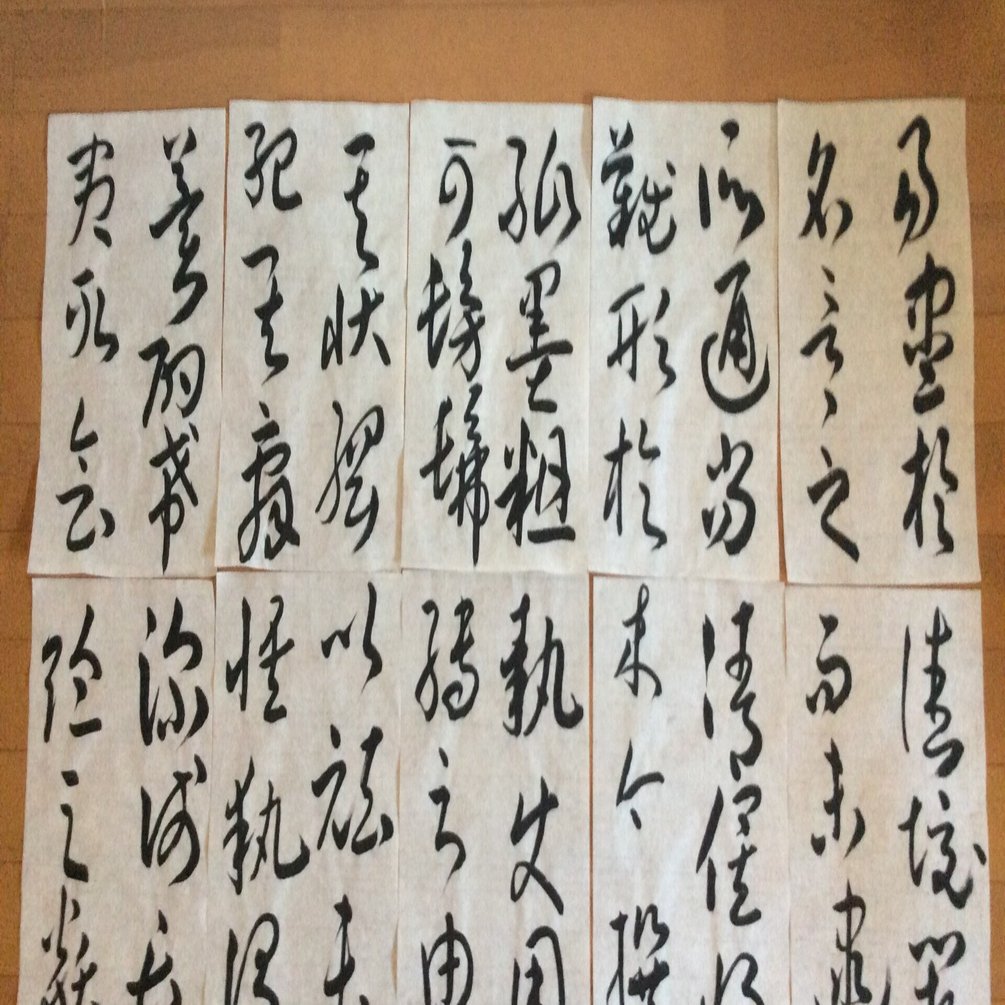 易盡於
名言々之
所通尚
難形於
紙墨粗
可髣髴
其狀綱
紀其辭
冀酌希
夷取會
佳境闕
而未逮
請俟將
來今撰
執使用
轉之由
以祛未
悟執謂
深淺長
短之類